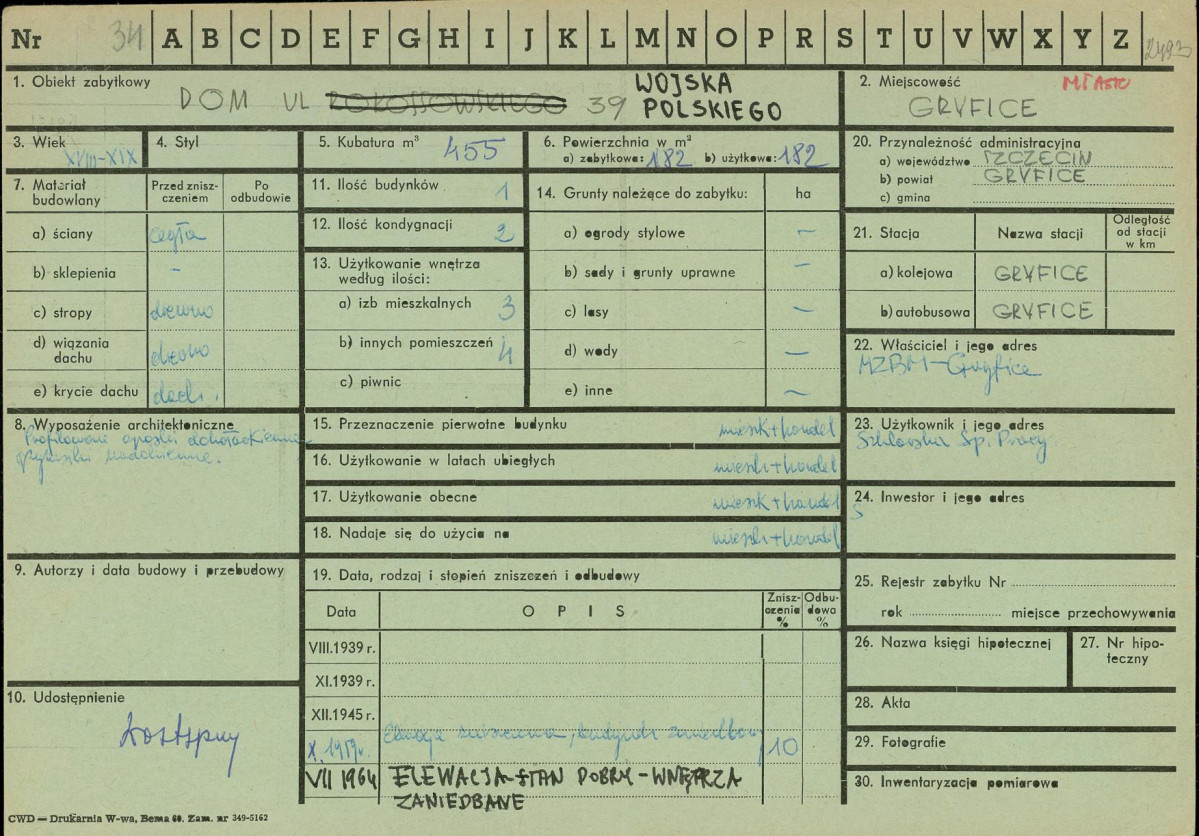 Nr 34 A B C D E F G H I J K L M N O P R S T U V W X Y Z 2493
1. Obiekt zabytkowy
DOM UL ROKOSSOWSKIEGO 39 WOJSKA
POLSKIEGO
2. Miejscowość MIASTO
GRYFICE
3. Wiek
XVIII-XIX
4. Styl
5. Kubatura m³ 455
6. Powierzchnia w m²
a) zabytkowa: 182 b) użytkowa: 182
20. Przynależność administracyjna
a) województwo SZCZECIN
b) powiat GRYFICE
c) gmina
7. Materiał budowlany
Przed zniszczeniem
Po odbudowie
a) ściany cegła
b) sklepienia -
c) stropy drewno
d) wiązania dachu drewno
e) krycie dachu dach.
11. Ilość budynków 1
12. Ilość kondygnacji 2
13. Użytkowanie wnętrza
według ilości:
a) izb mieszkalnych 3
b) innych pomieszczeń 4
c) piwnic
14. Grunty należące do zabytku: ha
a) ogrody stylowe -
b) sady i grunty uprawne -
c) lasy -
d) wody -
e) inne -
21. Stacja Nazwa stacji Odległość od stacji w km
a) kolejowa GRYFICE
b) autobusowa GRYFICE
22. Właściciel i jego adres
MZBM-Gryfice
8. Wyposażenie architektoniczne
Profilowane opaski dookoła okienne
nadokienne.
15. Przeznaczenie pierwotne budynku mieszk+handel
16. Użytkowanie w latach ubiegłych mieszk+handel
17. Użytkowanie obecne mieszk+handel
18. Nadaje się do użycia na mieszk+handel
23. Użytkownik i jego adres
Sp. Pracy
24. Inwestor i jego adres
S
9. Autorzy i data budowy i przebudowy
19. Data, rodzaj i stopień zniszczeń i odbudowy
Data OPIS Zniszczenia % Odbudowa %
VIII.1939 r.
XI.1939 r.
XII.1945 r.
X.1959r. Elewacja zniszczona, budynek zaniedbany 10
VII 1964 ELEWACJA-STAN DOBRY-WNĘTRZA
ZANIEDBANE
10. Udostępnienie
dostępny
25. Rejestr zabytku Nr
rok miejsce przechowywania
26. Nazwa księgi hipotecznej
27. Nr hipoteczny
28. Akta
29. Fotografie
30. Inwentaryzacja pomiarowa
CWD — Drukarnia W-wa, Bema 60. Zam. nr 349-5162